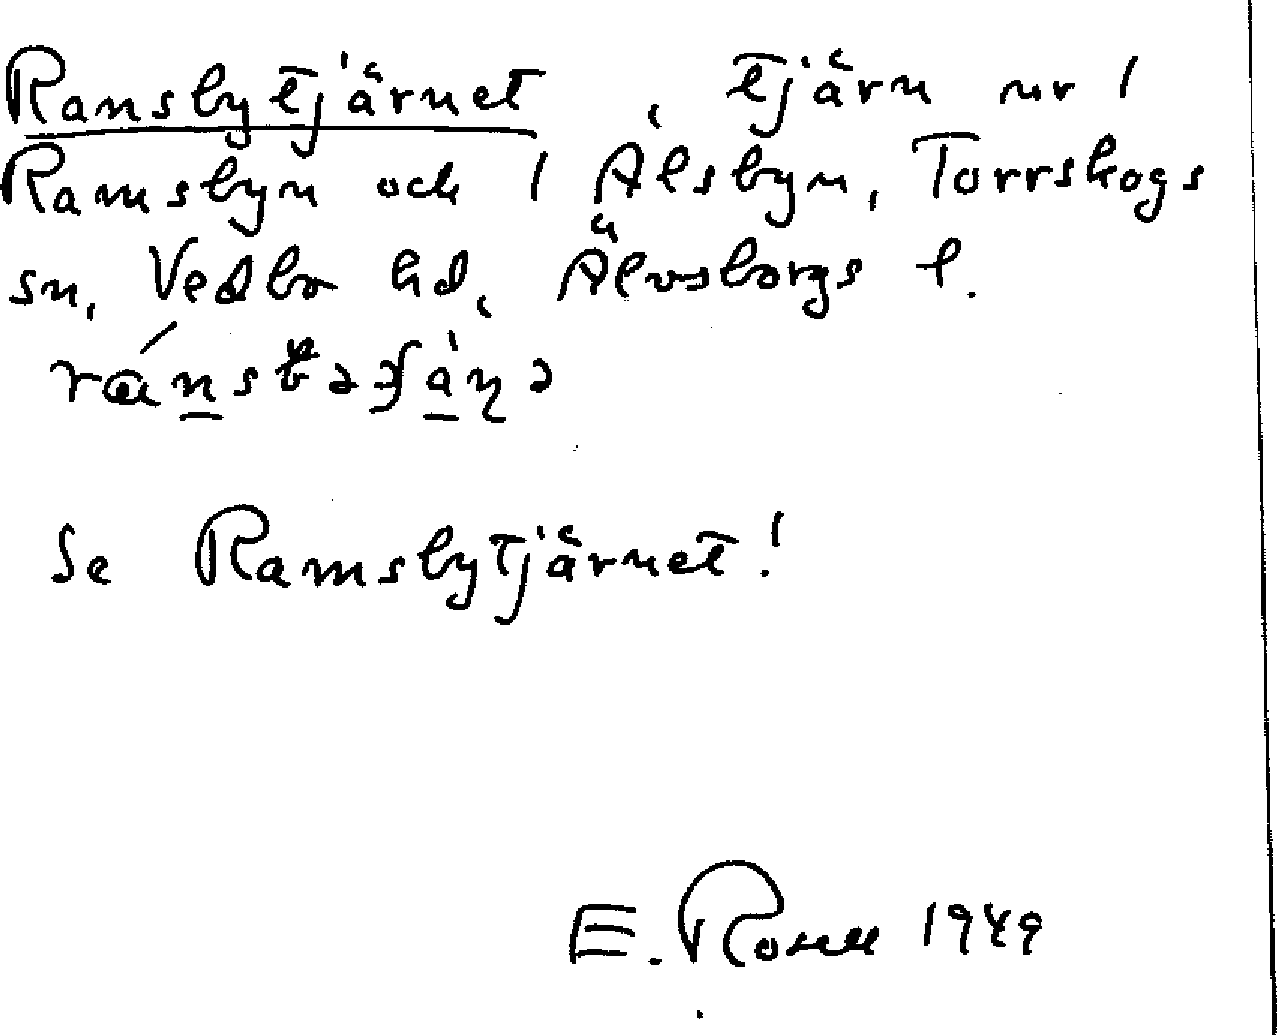 Ramsbytjärnet, tjärn nr 1
Ramsbyn och 1 Ålsbyn, Torrskogs
sn, Vedbo hd, Älvsborgs l.
Se Ramsbytjärnet!
E. Rosell 1949